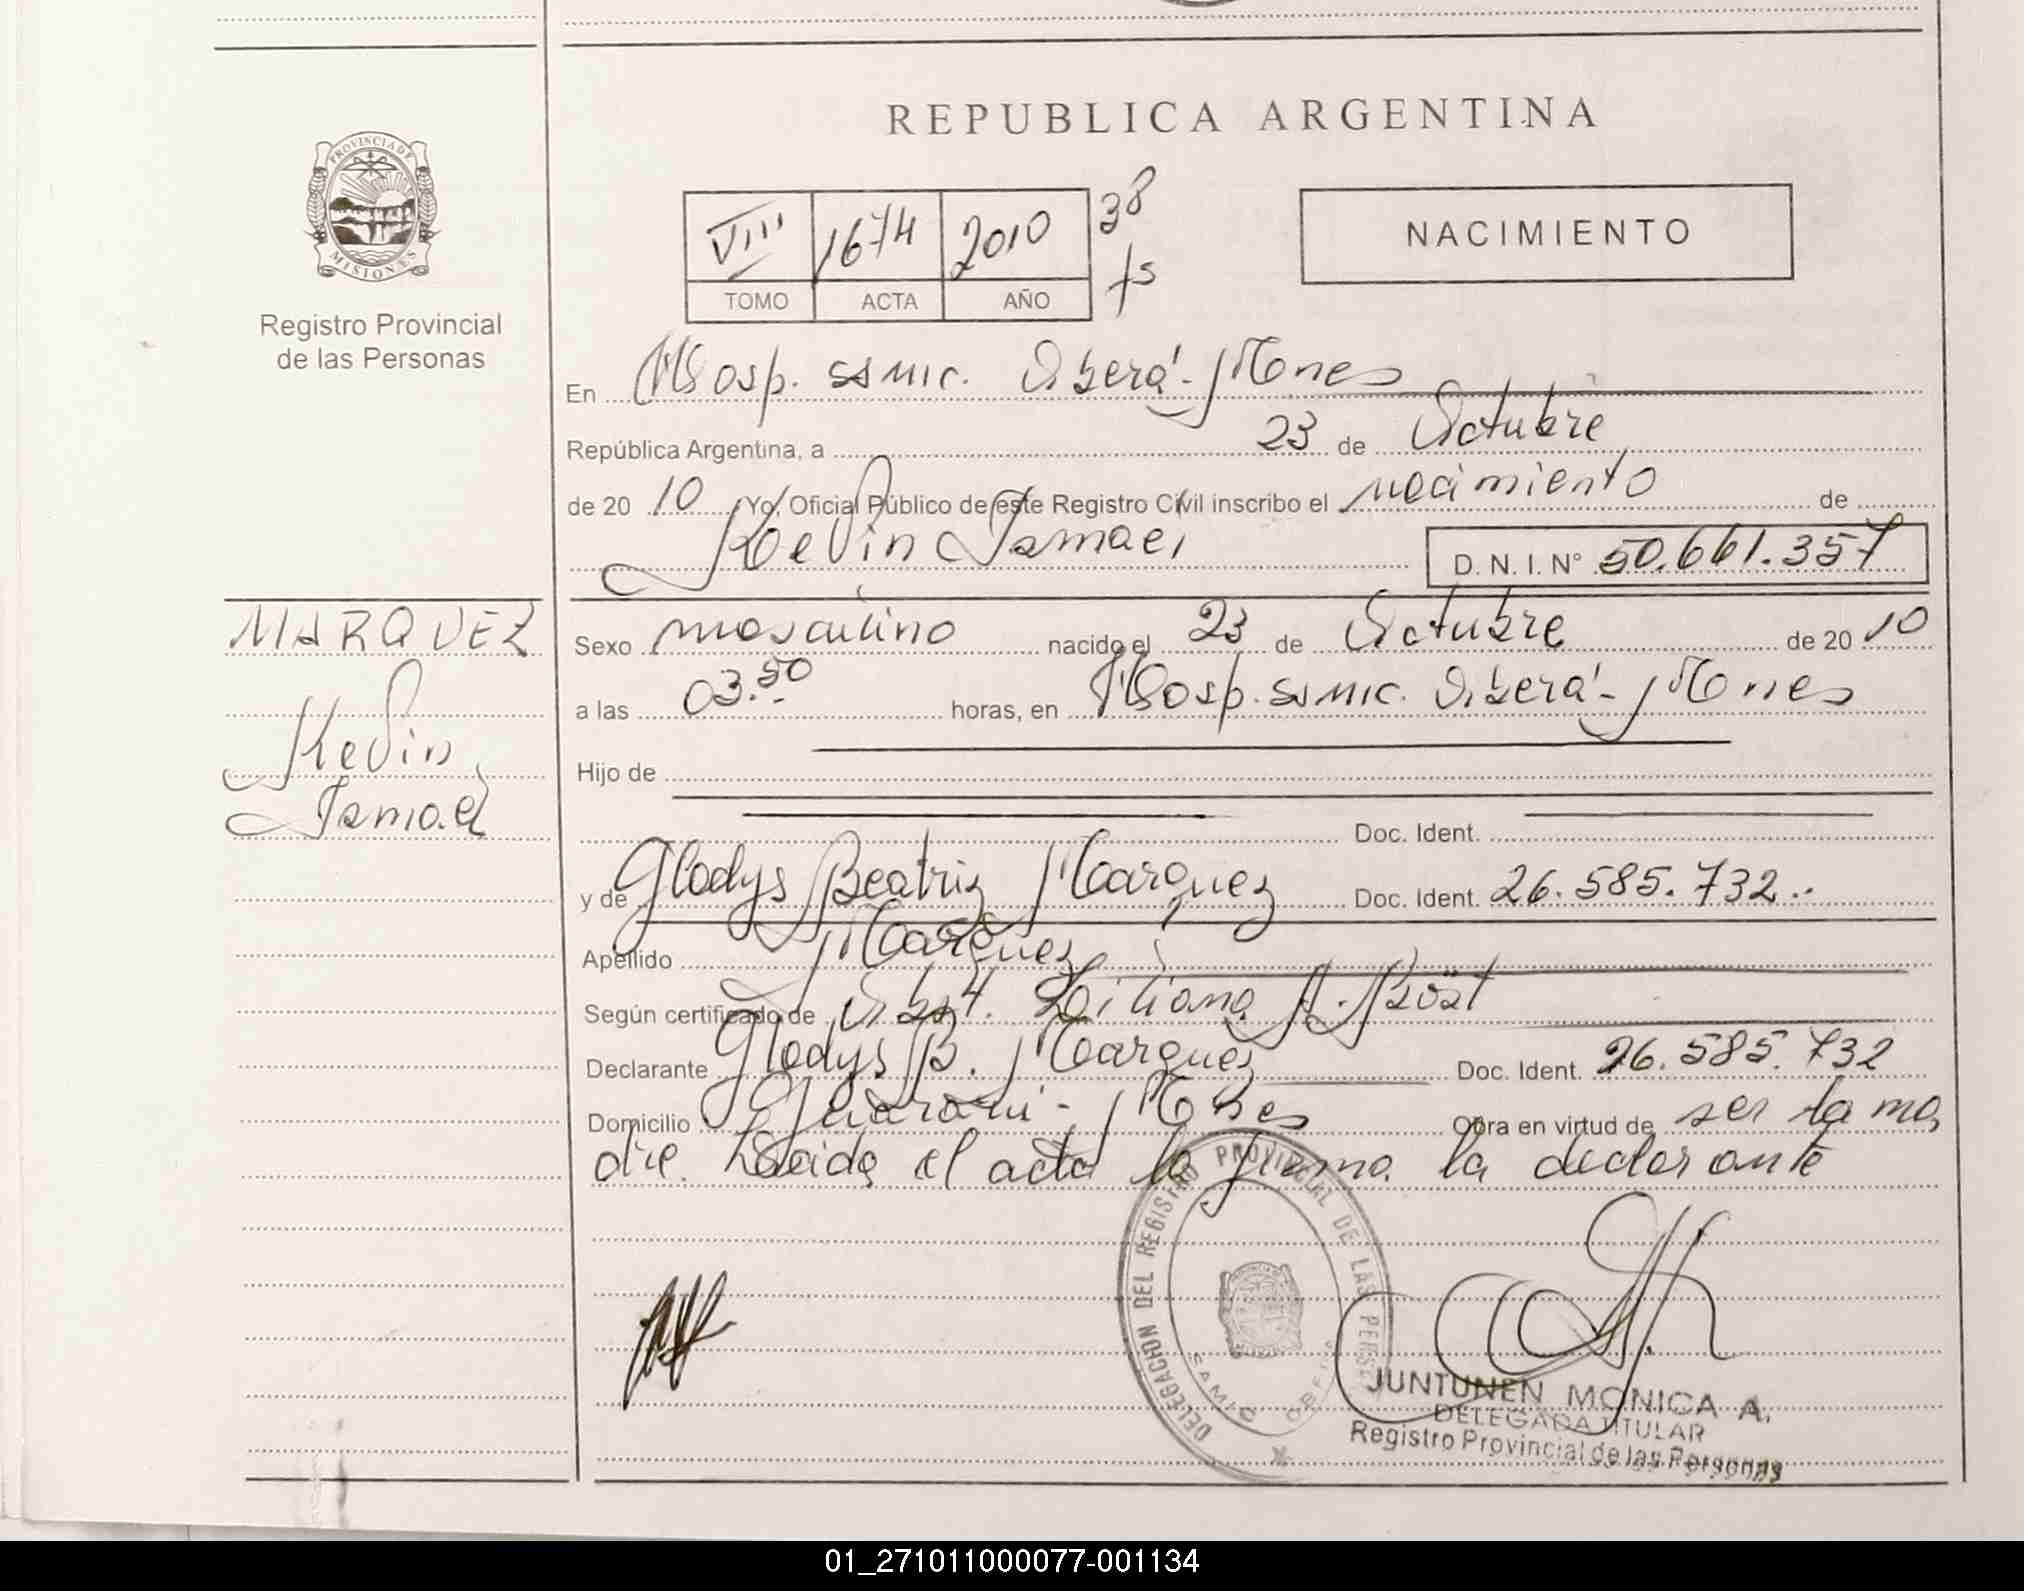 REPUBLICA ARGENTINA
PROVINCIA DE MISIONES
Registro Provincial
de las Personas
VIII 1674 2010 38
TOMO ACTA AÑO fs
NACIMIENTO
En Hosp. SAMIC. Oberá - Mones
República Argentina, a 23 de Octubre
de 2010 Yo, Oficial Público de este Registro Civil inscribo el nacimiento de
Kevin Ismael D. N. I. Nº 50.661.357
MARQUEZ
Kevin
Ismael
Sexo masculino nacido el 23 de Octubre de 2010
a las 03.50 horas, en Hosp. SAMIC. Oberá - Mones
Hijo de
Doc. Ident.
y de Gladys Beatriz Marquez Doc. Ident. 26.585.732..
Apellido Marquez
Según certificado de Obst. Liliana
Declarante Gladys B. Marquez Doc. Ident. 26.585.732
Domicilio Guaraní - Obra en virtud de ser la ma
dre. Leída el acta la firma la declarante
DELEGACION DEL REGISTRO PROVINCIAL DE LAS PERS
SAMIC OBERA
JUNTUNEN MONICA A.
DELEGADA TITULAR
Registro Provincial de las Personas
01_271011000077-001134